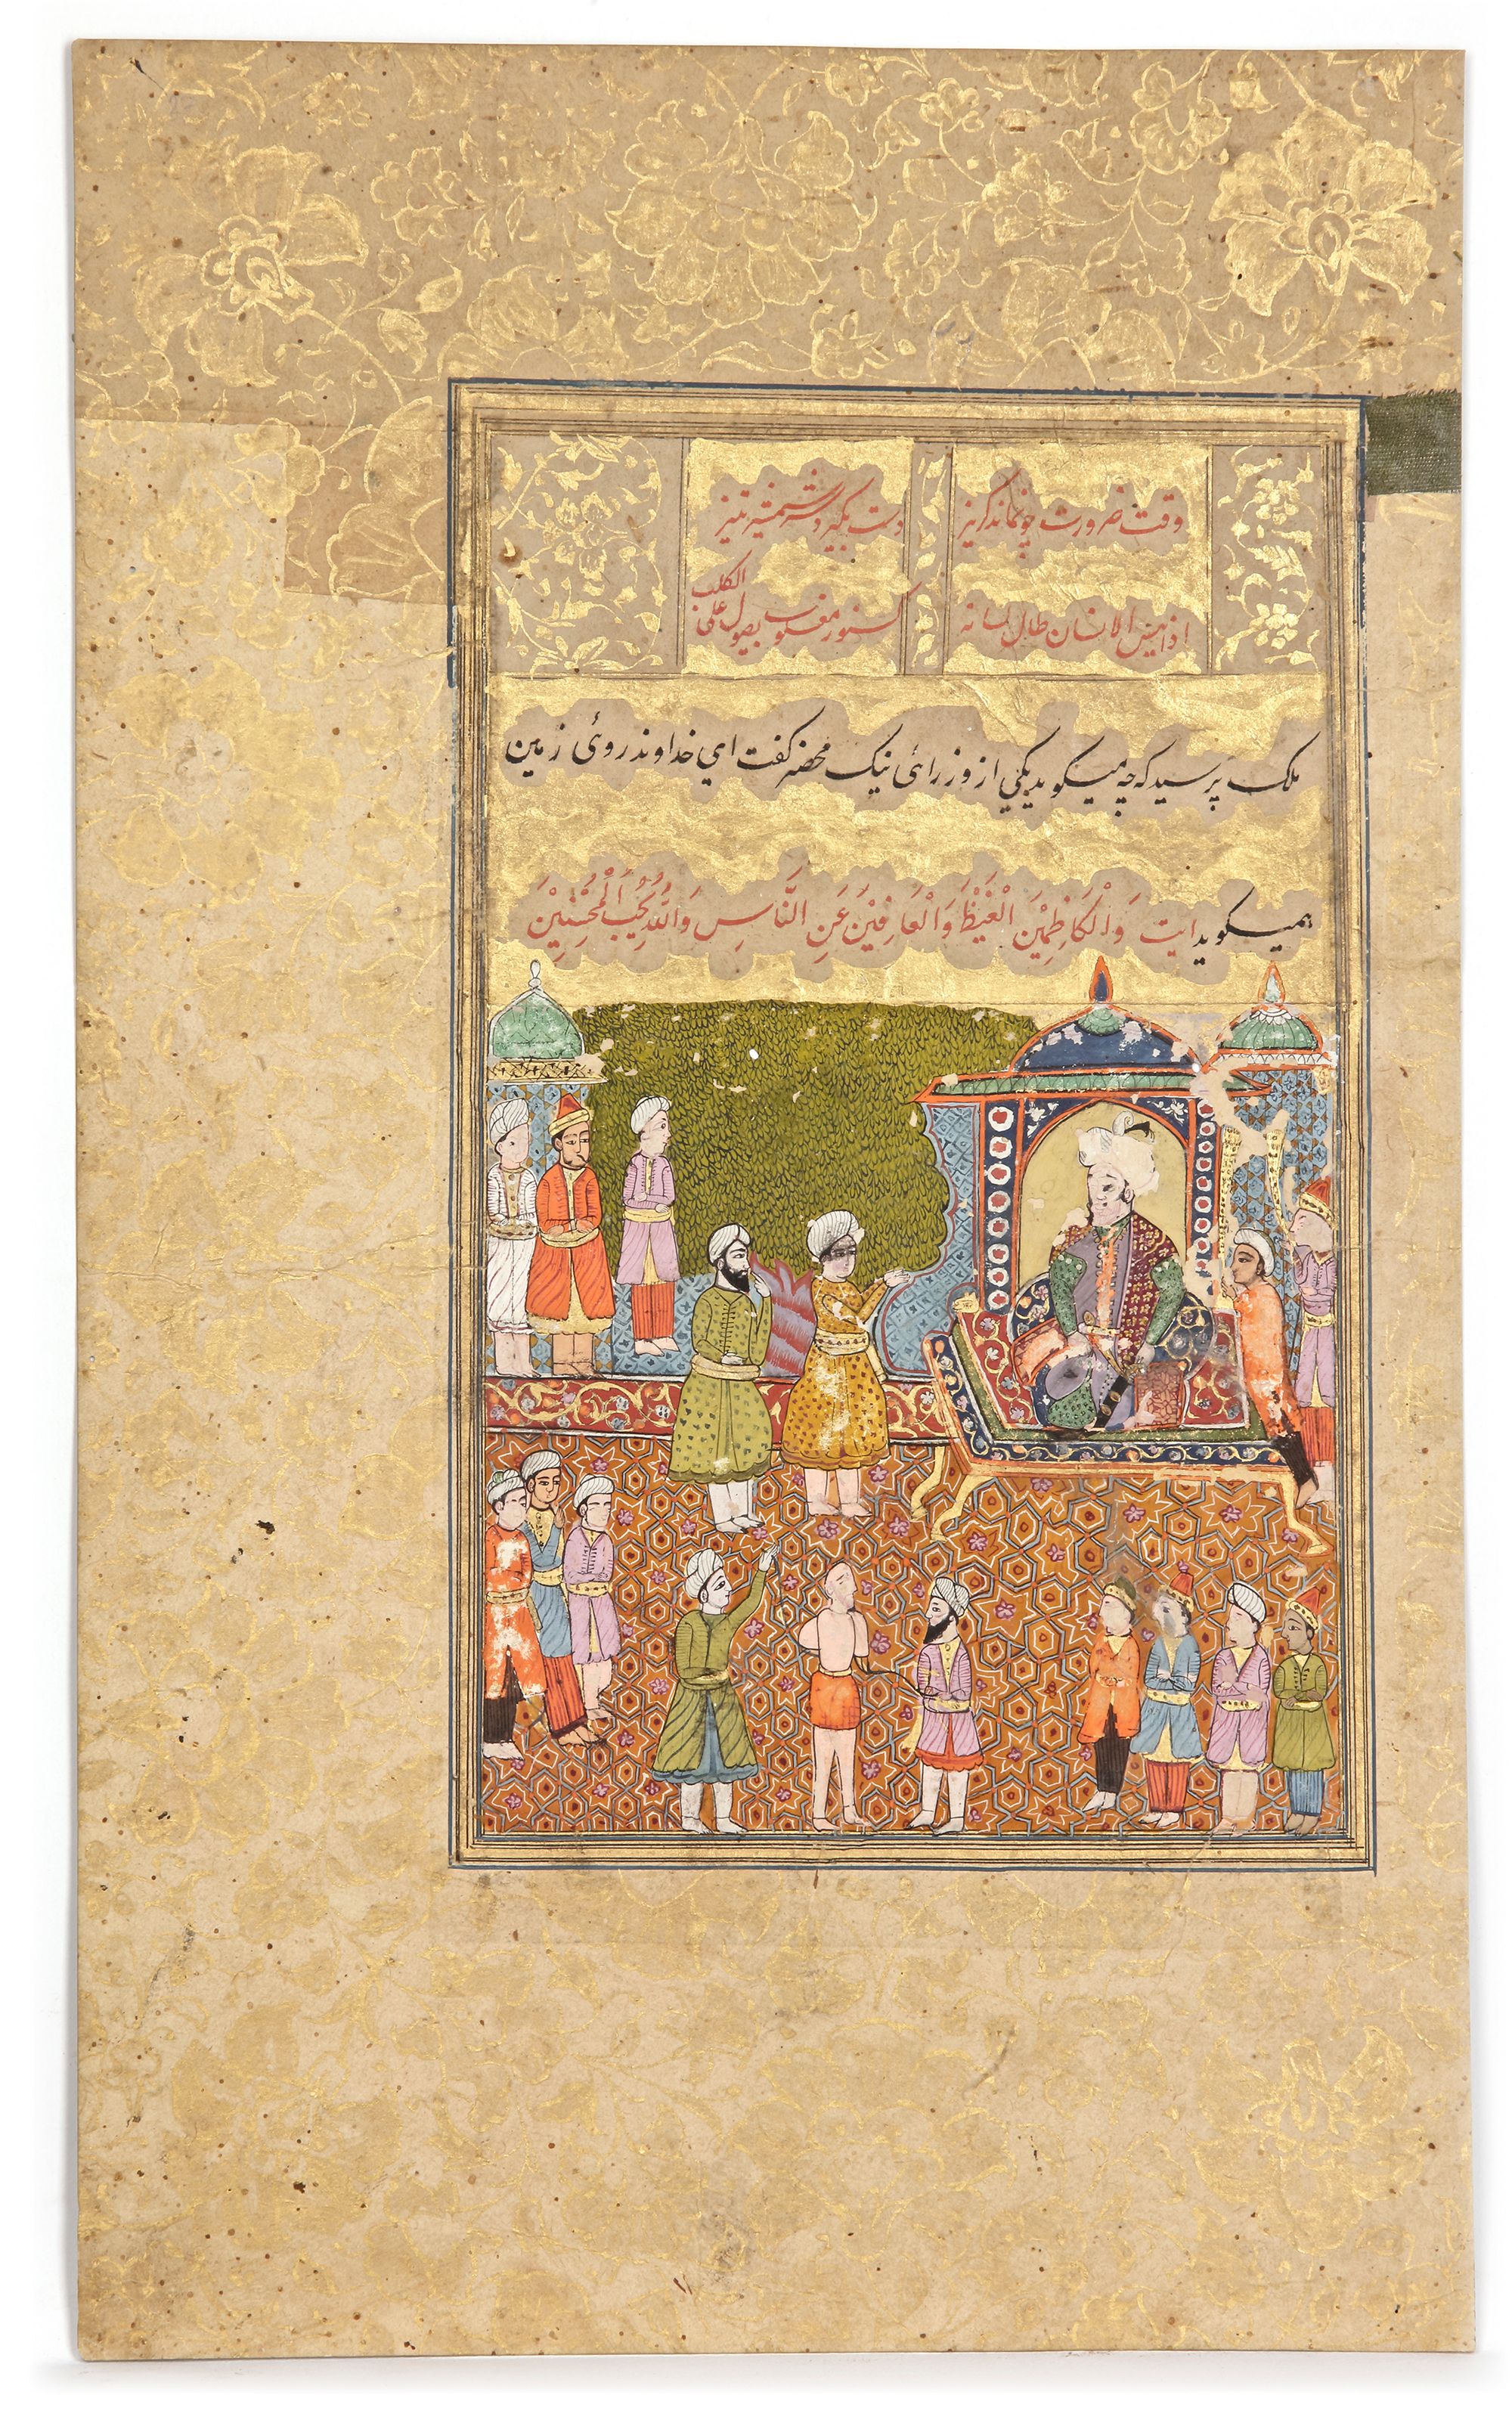 وقت ضرورت چو نماند گریز
دست بگیرد سر شمشیر تیز
اذا یئس الانسان طال لسانه
کسنور مغلوب یصول علی الکلب
ملک پرسید که چه میگوید یکی از وزرائی نیک محضر گفت ای خداوند روئی زمین
همیگوید ایت وَالْکَاظِمِیْنَ الْغَیْظَ وَالْعَارِفِیْنَ عَنِ النَّاسِ وَاللّٰهُ یُحِبُّ الْمُحْسِنِیْنَ